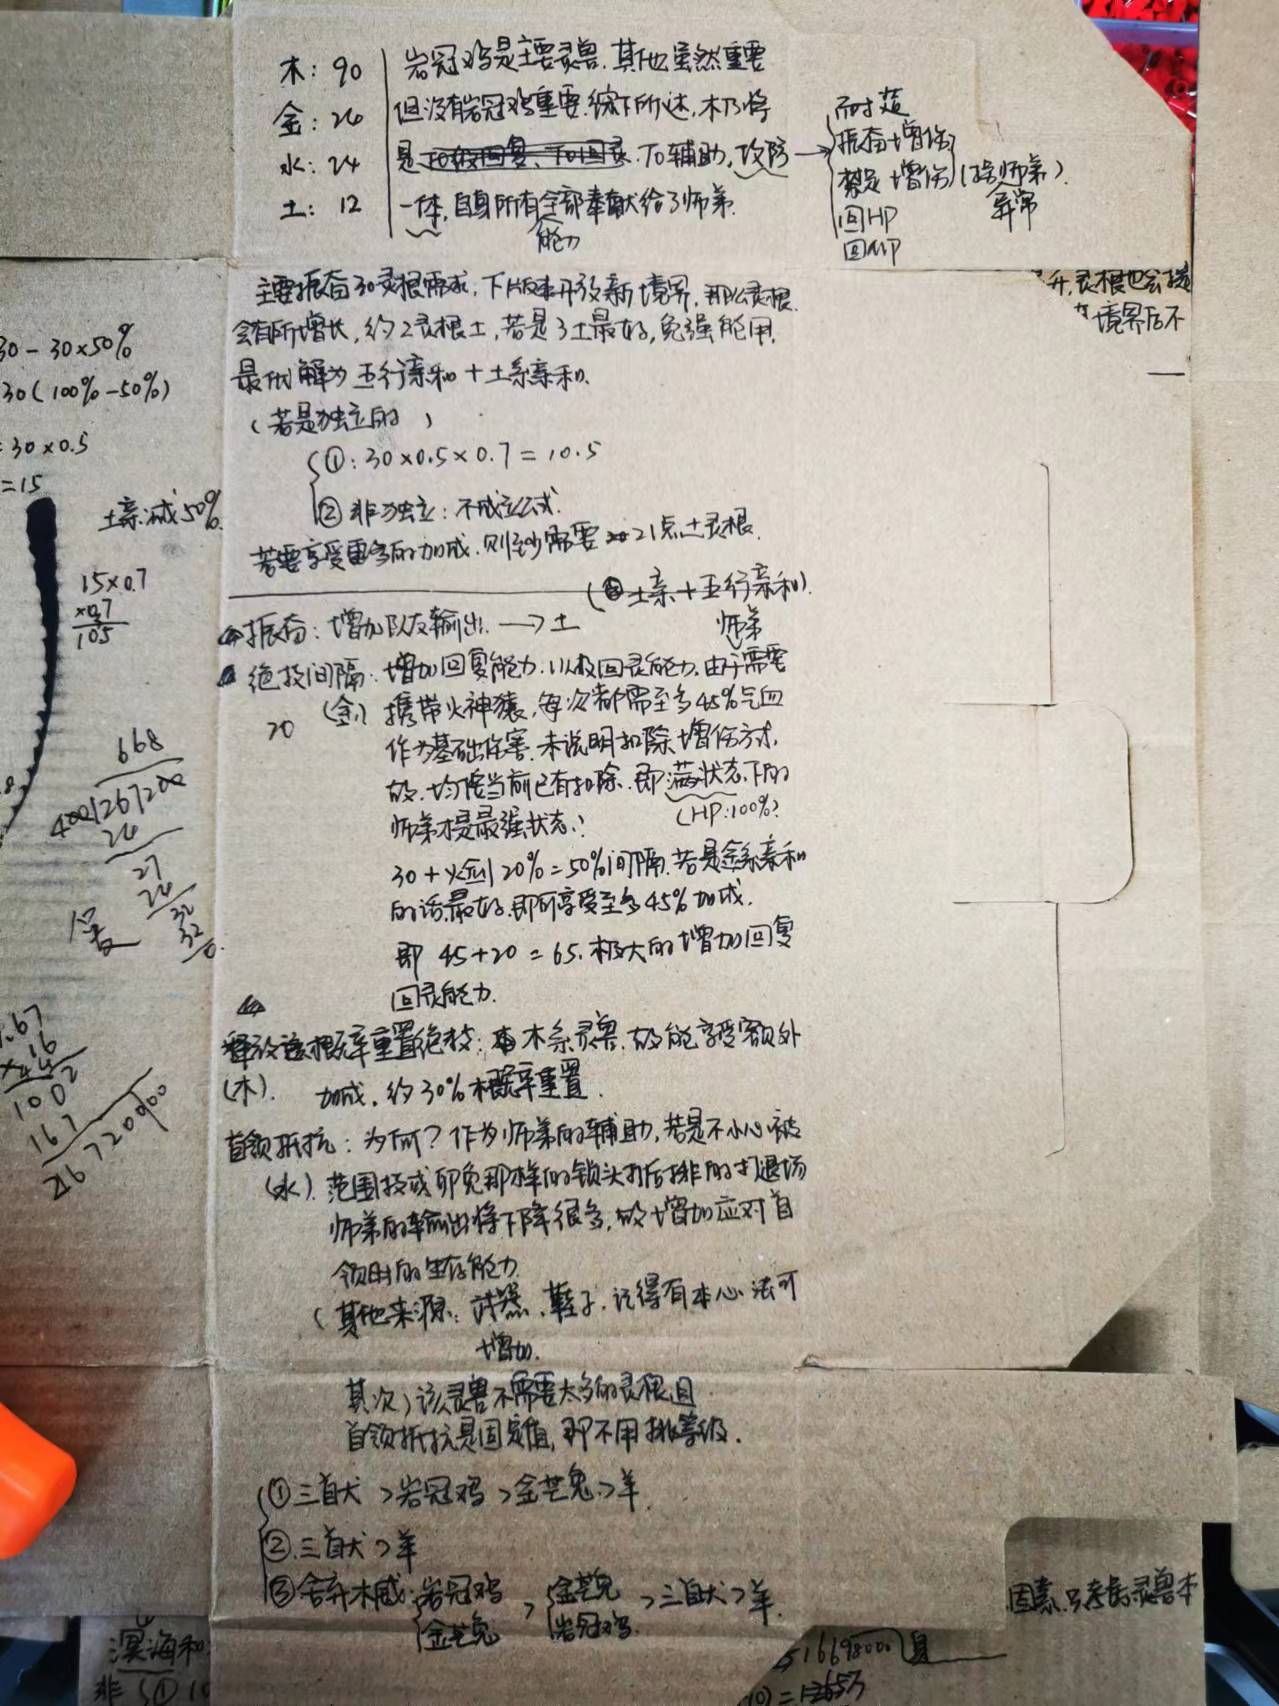 木：90
金：26
水：24
土：12
岩冠鸡是主要灵兽．其他虽然重要
但没有岩冠鸡重要．综下所述，木乃将
是 TO辅助，攻防
一体，自身所有全部奉献给了师弟．
能力
→ 耐揍
振奋增伤
禁足增伤(接师弟)．
异常
回HP
回MP
升，灵根也会
境界后不
主要振奋30灵根需求，下版本开放新境界，那么灵根
会有所增长，约2灵根土，若是3土最好，免强能用，
最低解为五行亲和+土系亲和．
（若是独立的）
①：30×0.5×0.7＝10.5
②非独立：不成立公式．
若要享受更多的加成，则至少需要21点土灵根．
(土亲+五行亲和)．
30－30×50%
30(100%－50%)
＝30×0.5
＝15
土亲：减50%
15×0.7
×0.7
105
振奋：增加队友输出 →土
师弟
绝技间隔：增加回复能力，以及回灵能力．由于需要
20 (金) 携带火神猿，每次都需至多45%气血
作为基础伤害．未说明扣除增伤方式，
故，均按当前已有扣除．即满状态下的
(HP:100%)
师弟才是最强状态！
30+火金 20%＝50%间隔．若是金系亲和
的话最好．即可享受至多45%加成．
即 45+20＝65．极大的增加回复
回灵能力．
668
400 267200
24
27
24
32
32
0
.67
×16
100 2
167
26720000
释放该概率重置绝技：木系灵兽．故能享受额外
(木)． 加成．约30%概率重置．
首领抵抗：为何？作为师弟的辅助，若是不小心被
(水)．范围技或卯兔那样的锁头打后排的打退场
师弟的输出将下降很多，故增加应对首
领时的生存能力
（其他来源：武器、鞋子，记得有本心法可
增加．
其次）该灵兽不需要太多的灵根且
首领抵抗是固定值，即不用挑等级．
①三首犬＞岩冠鸡＞金芒兔＞羊．
②．三首犬＞羊
③舍弃木感：岩冠鸡 金芒兔 ＞ 金芒兔 岩冠鸡 ＞三首犬＞羊．
因素．只考虑灵兽本
溟海和
非 ①
16698000